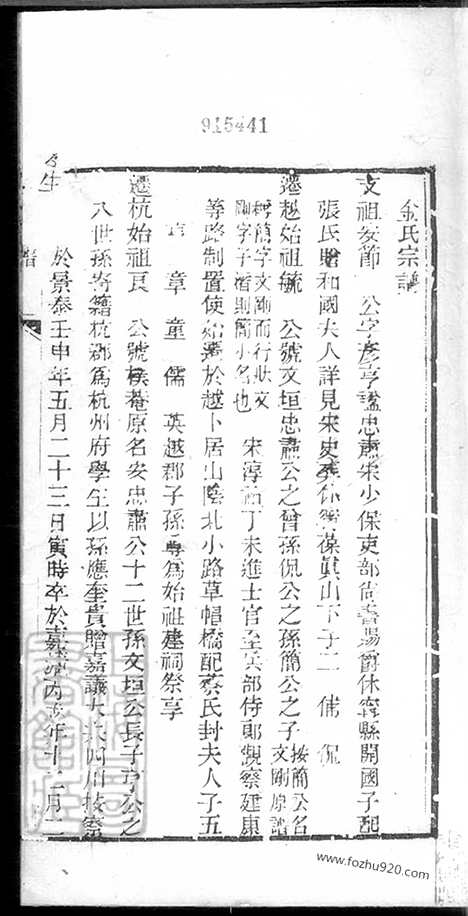 915441
金氏宗譜
支祖安節 公字彥亨諡忠肅宋少保吏部尙書賜爵休寧縣開國子配
張氏贈和國夫人詳見宋史 休寧葆眞山下子二 侑 侃
遷越始祖毓 公號文垣忠肅公之曾孫侃公之孫簡公之子 按簡公名文剛原譜
簡字文剛而行狀文剛字子 則簡小名也 宋淳祐丁未進士官至兵部侍郞觀察建康
等路制置使始遷於越卜居山陰北小路草帽橋配蔡氏封夫人子五
章 童 儒 英越郡子孫尊為始祖建祠祭享
遷杭始祖良 公號樸菴原名安忠肅公十二世孫文垣公長子 公之
八世孫寄籍杭郡為杭州府學生以孫應奎貴贈嘉議大夫四川按察
生於景泰壬申年五月二十三日寅時卒於嘉靖丙戌年十二月二
www.fozhu920.com